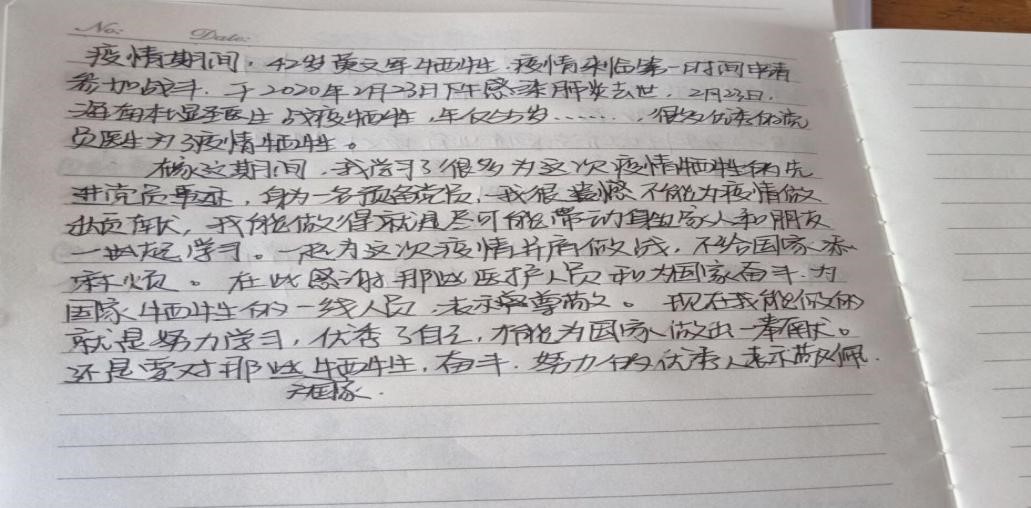 No: Date:
疫情期间,42岁黄文军牺牲,疫情来临第一时间申请
参加战斗.于2020年2月23日下午感染肺炎去世,2月23日,
海南杜显圣医生战疫牺牲,年仅55岁……,很多优秀的党
员医生为了疫情牺牲。
在家这期间,我学习了很多为这次疫情牺牲的先
进党员事迹,身为一名预备党员,我很遗憾不能为疫情做
出贡献,我能做得就是尽可能带动身边家人和朋友
一起学习。一起为这次疫情并肩做战,不给国家添
麻烦。在此感谢那些医护人员和为国家奋斗.为
国家牺牲的一线人员,表示尊敬。现在我能做的
就是努力学习,优秀了自己,才能为国家做出一番贡献。
还是要对那些牺牲,奋斗.努力的优秀人表示敬佩.
为国家.